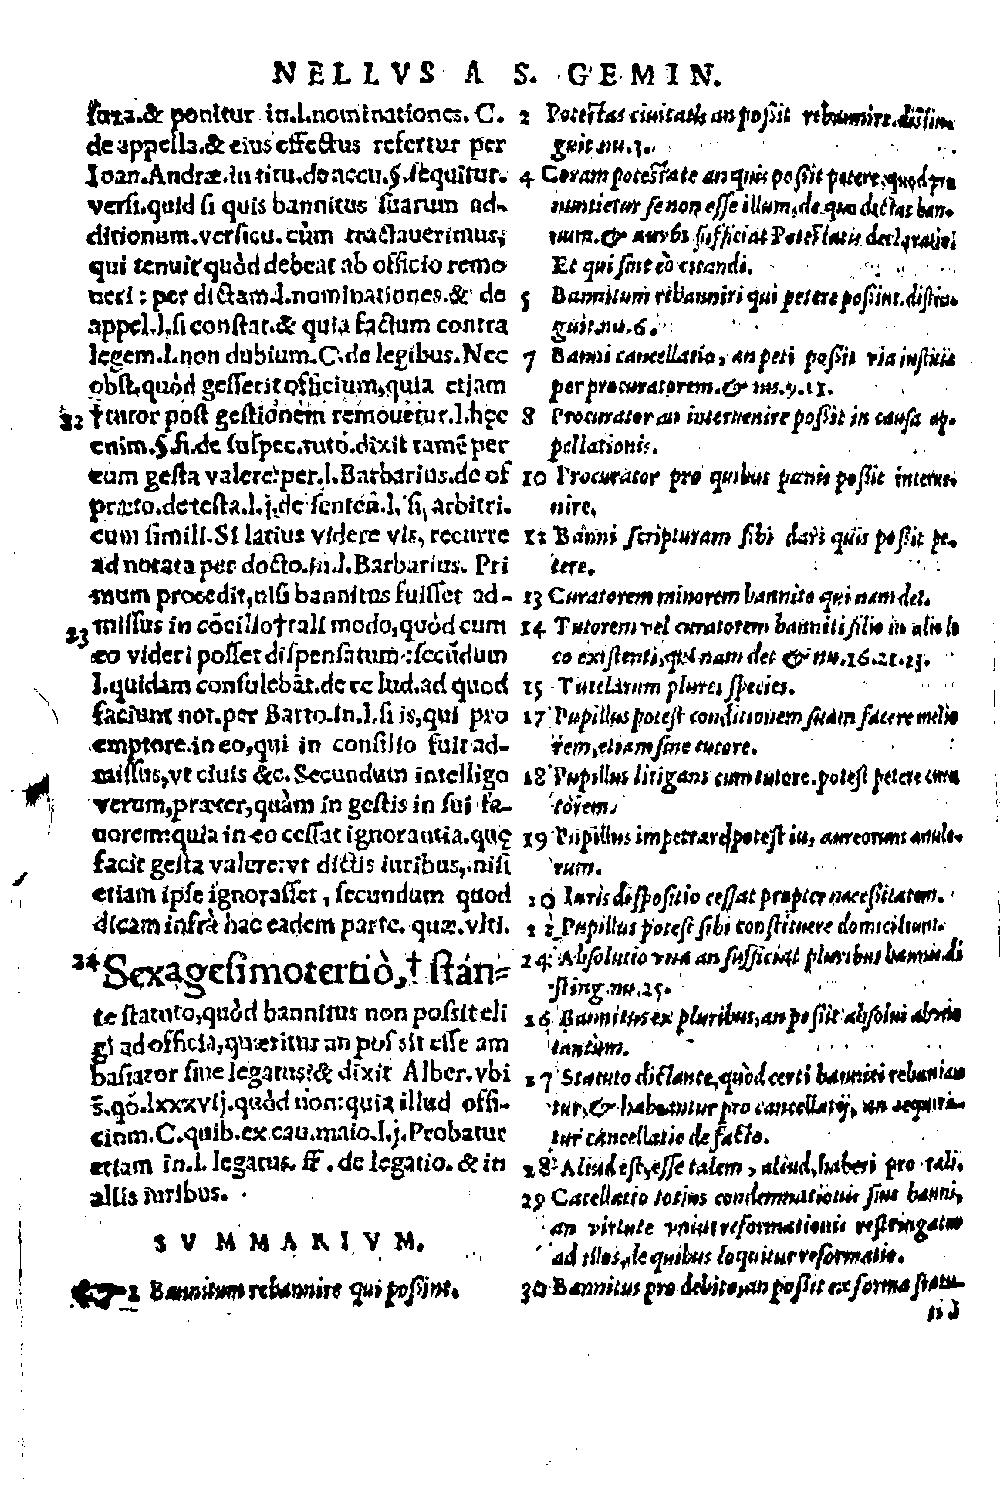 NELLVS A S. GEMIN.
iura.& ponitur in.l.nominationes. C.
de appella.& eius effectus refertur per
Ioan.Andræ.in titu.de accu.§.sequitur.
versi.quid si quis bannitus suarum ad-
ditionum.versicu.cùm tractauerimus,
qui tenuit quòd debeat ab officio remo
ueri: per dictam.l.nominationes.& de
appel.l.si constat.& quia factum contra
legem.l.non dubium.C.de legibus.Nec
obst.quòd gesserit officium,quia etiam
22 †tutor post gestionem remouetur.l.hęc
enim.§.fi.de suspec.tuto.dixit tamē per
eum gesta valere:per.l.Barbarius.de of
præto.de testa.l.j.de senten.l. si, arbitri.
cum simili.Si latius videre vis, recurre
ad notata per docto.in.l.Barbarius. Pri
mum procedit,nisi bannitus fuisset ad-
23 missus in cōcilio†tali modo,quòd cum
eo videri posset dispensatum:secūdum
l.quidam consulebāt.de re iud.ad quod
faciunt not.per Barto.in.l.si is,qui pro
emptore.in eo,qui in consilio fuit ad-
missus,vt ciuis &c. Secundum intelligo
verum,præter,quàm in gestis in sui fa-
uorem:quia in eo cessat ignorantia,quę
facit gesta valere:vt dictis iuribus, nisi
etiam ipse ignorasset, secundum quod
dicam infrà hac eadem parte. quæ.vlti.
24 Sexagesimotertiò,† stan-
te statuto,quòd bannitus non possit eli
gi ad officia,quæritur an possit esse am
basiator siue legatus?& dixit Alber.vbi
s̄.qō.lxxxvij.quòd non:quia illud offi-
cium.C.quib.ex cau.maio.l.j.Probatur
etiam in.l. legatus. ff. de legatio. & in
aliis iuribus.
SVMMARIVM.
1 Bannitum rebannire qui possint.
2 Potestas ciuitatis an possit rebannire.distin-
guit.nu.3.
4 Coram potestate an quis possit petere,quod pro
nuntietur se non esse illum,de quo dictas ban-
tum.& an sufficiat Potestatis declaratio?
Et qui sint eò citandi.
5 Bannitum ribanniri qui petere possint.distin-
guit.nu.6.
7 Banni cancellatio, an peti possit via iustitiæ
per procuratorem.& nu.9.11.
8 Procurator an interuenire possit in causa ap-
pellationis.
10 Procurator pro quibus pœnis possit interue-
nire.
12 Banni scripturam sibi dari quis possit pe-
tere.
13 Curatorem minorem bannito qui nam det.
14 Tutorem vel curatorem banniti filio in alio lo
co existenti,qui nam det & nu.16.21.23.
15 Tutelarum plures species.
17 Pupillus potest conditionem suam facere melio
rem,etiam sine tutore.
18 Pupillus litigans cum tutore.potest petere cura
torem.
19 Pupillus impetrare potest ius aureorum anulo-
rum.
20 Iuris dispositio cessat propter necessitatem.
22 Pupillus potest sibi constituere domicilium.
24 Absolutio vna an sufficiat pluribus bannis di
sting.nu.25.
26 Bannitus ex pluribus,an possit absolui ab vno
tantùm.
27 Statuto dictante,quòd certi banniti rebanian
tur,& habeantur pro cancellatis, an requira-
tur cancellatio de facto.
28 Aliud est,esse talem, aliud,haberi pro tali.
29 Cācellatio totius condemnationis siue banni,
an virtute vnius reformationis restringatur
ad illos,de quibus loquitur reformatio.
30 Bannitus pro debito,an possit ex forma statu-